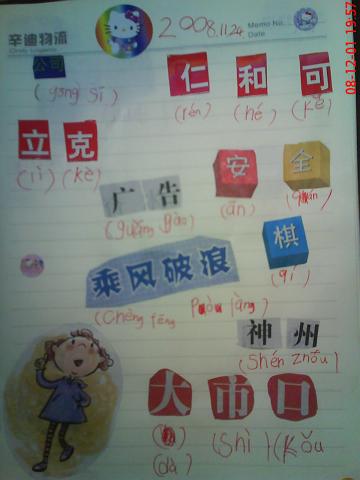 辛迪物流
Cindy Logistics
2008.11.24
Memo No.
Date
公司
(gōngsī)
仁和可
(rén) (hé) (kě)
立克
(lì) (kè)
安全
(ān)
广告
(guǎng gào)
棋
(qí)
乘风破浪
(Chéng fēng
神州
(shén zhōu)
大市口
(dà) (Shì) (Kǒu
08-12-01 19:57